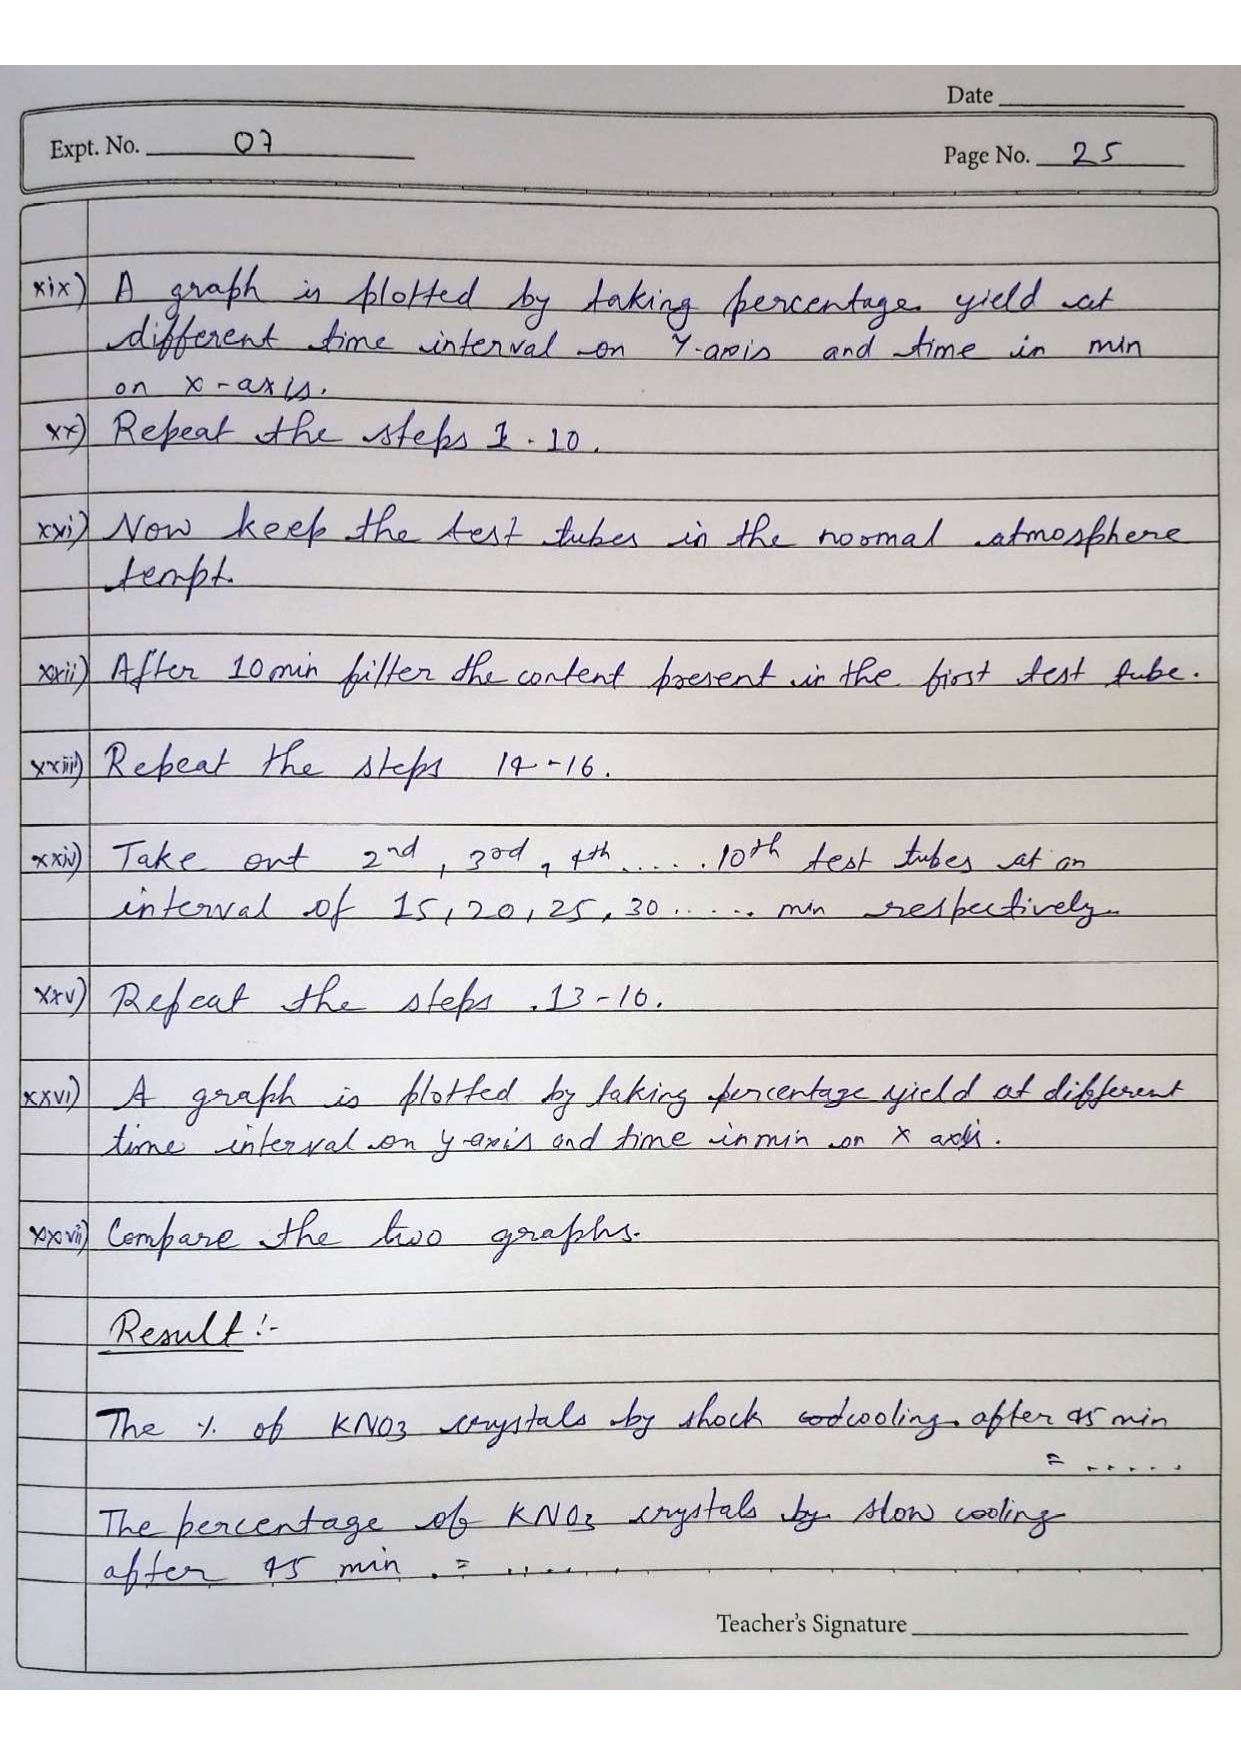 Date
Expt. No. 07
Page No. 25
xix) A graph is plotted by taking percentage yield at
different time interval on Y-axis and time in min
on x-axis.
xx) Repeat the steps 1-10.
xxi) Now keep the test tubes in the normal atmosphere
tempt.
xxii) After 10 min filter the content present in the first test tube.
xxiii) Repeat the steps 14-16.
xxiv) Take out 2nd, 3rd, 4th.....10th test tubes at an
interval of 15, 20, 25, 30...... min respectively.
xxv) Repeat the steps 13-16.
xxvi) A graph is plotted by taking percentage yield at different
time interval on y-axis and time in min on x axis.
xxvii) Compare the two graphs.
Result:-
The % of KNO3 crystals by shock cooling after 45 min
= ......
The percentage of KNO3 crystals by slow cooling
after 45 min. = ......
Teacher's Signature